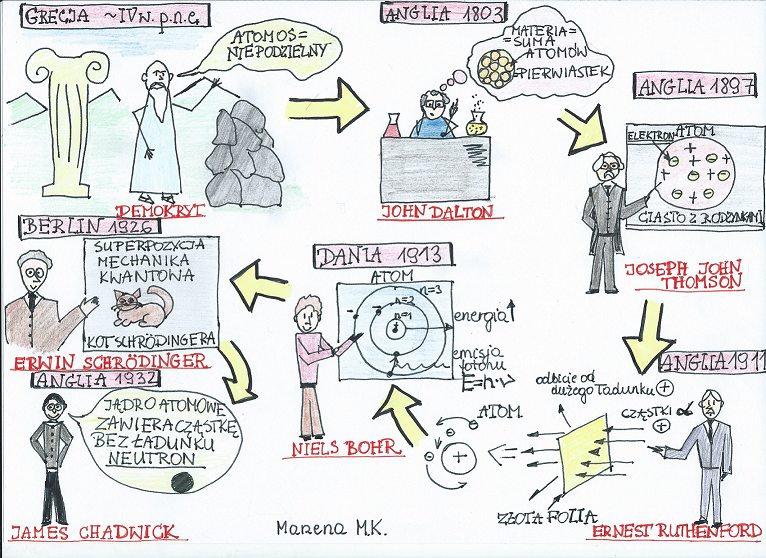 GRECJA ~IV w. p.n.e.
ATOMOS =
NIEPODZIELNY
DEMOKRYT
ANGLIA 1803
MATERIA =
= SUMA
ATOMÓW
= PIERWIASTEK
JOHN DALTON
ANGLIA 1897
ELEKTRON ATOM
CIASTO Z RODZYNKAMI
JOSEPH JOHN
THOMSON
ANGLIA 1911
odbicie od
dużego ładunku +
CZĄSTKI α
+
ZŁOTA FOLIA
ATOM
ERNEST RUTHENFORD
DANIA 1913
ATOM
n=3
n=2
n=1
energia
emisja
fotonu
E=h·ν
NIELS BOHR
BERLIN 1926
SUPERPOZYCJA
MECHANIKA
KWANTOWA
KOT SCHRÖDINGERA
ERWIN SCHRÖDINGER
ANGLIA 1932
JĄDRO ATOMOWE
ZAWIERA CZĄSTKĘ
BEZ ŁADUNKU
NEUTRON
JAMES CHADWICK
Marzena M.K.